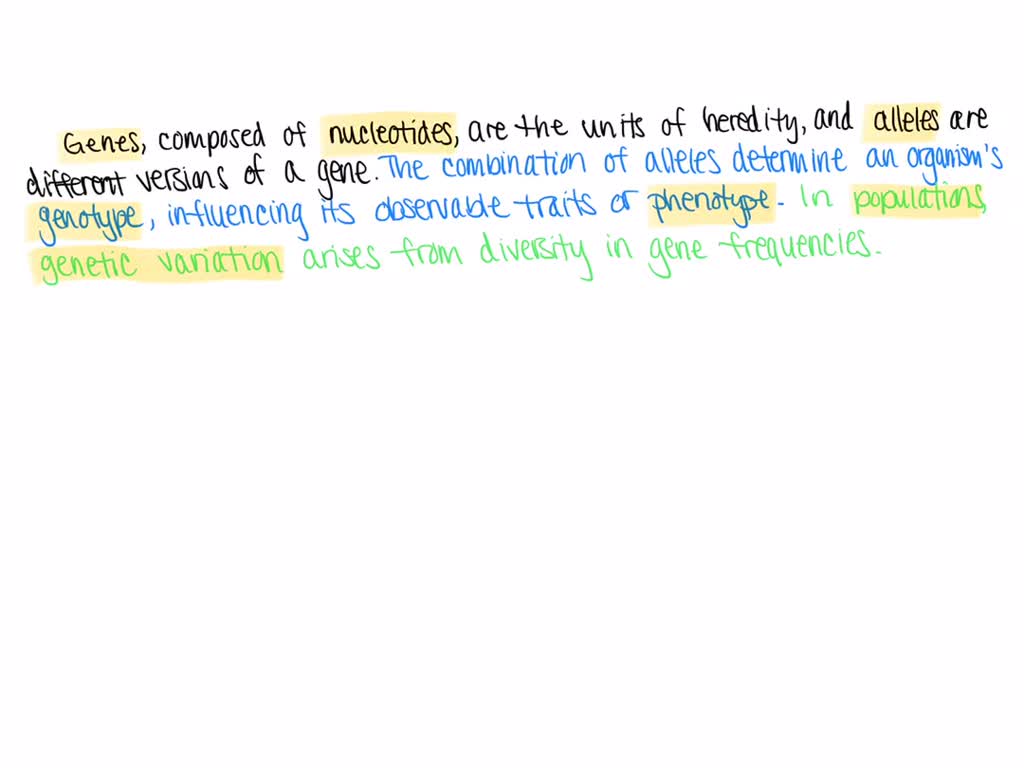 Genes, composed of nucleotides, are the units of heredity, and alleles are
different versions of a gene. The combination of alleles determine an organism's
genotype, influencing its observable traits or phenotype. In populations,
genetic variation arises from diversity in gene frequencies.